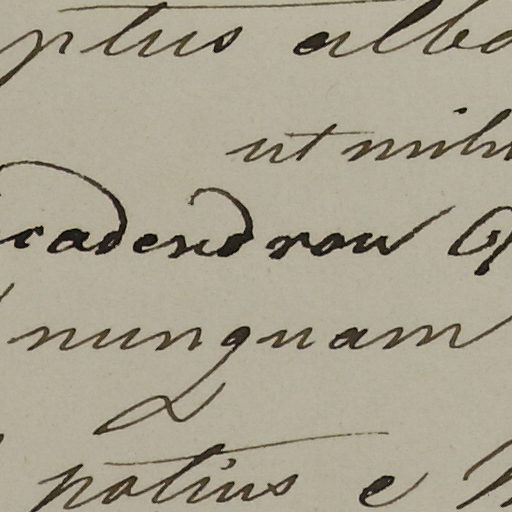 ptus alba
ut mihi
cadendron
nunquam
potius e